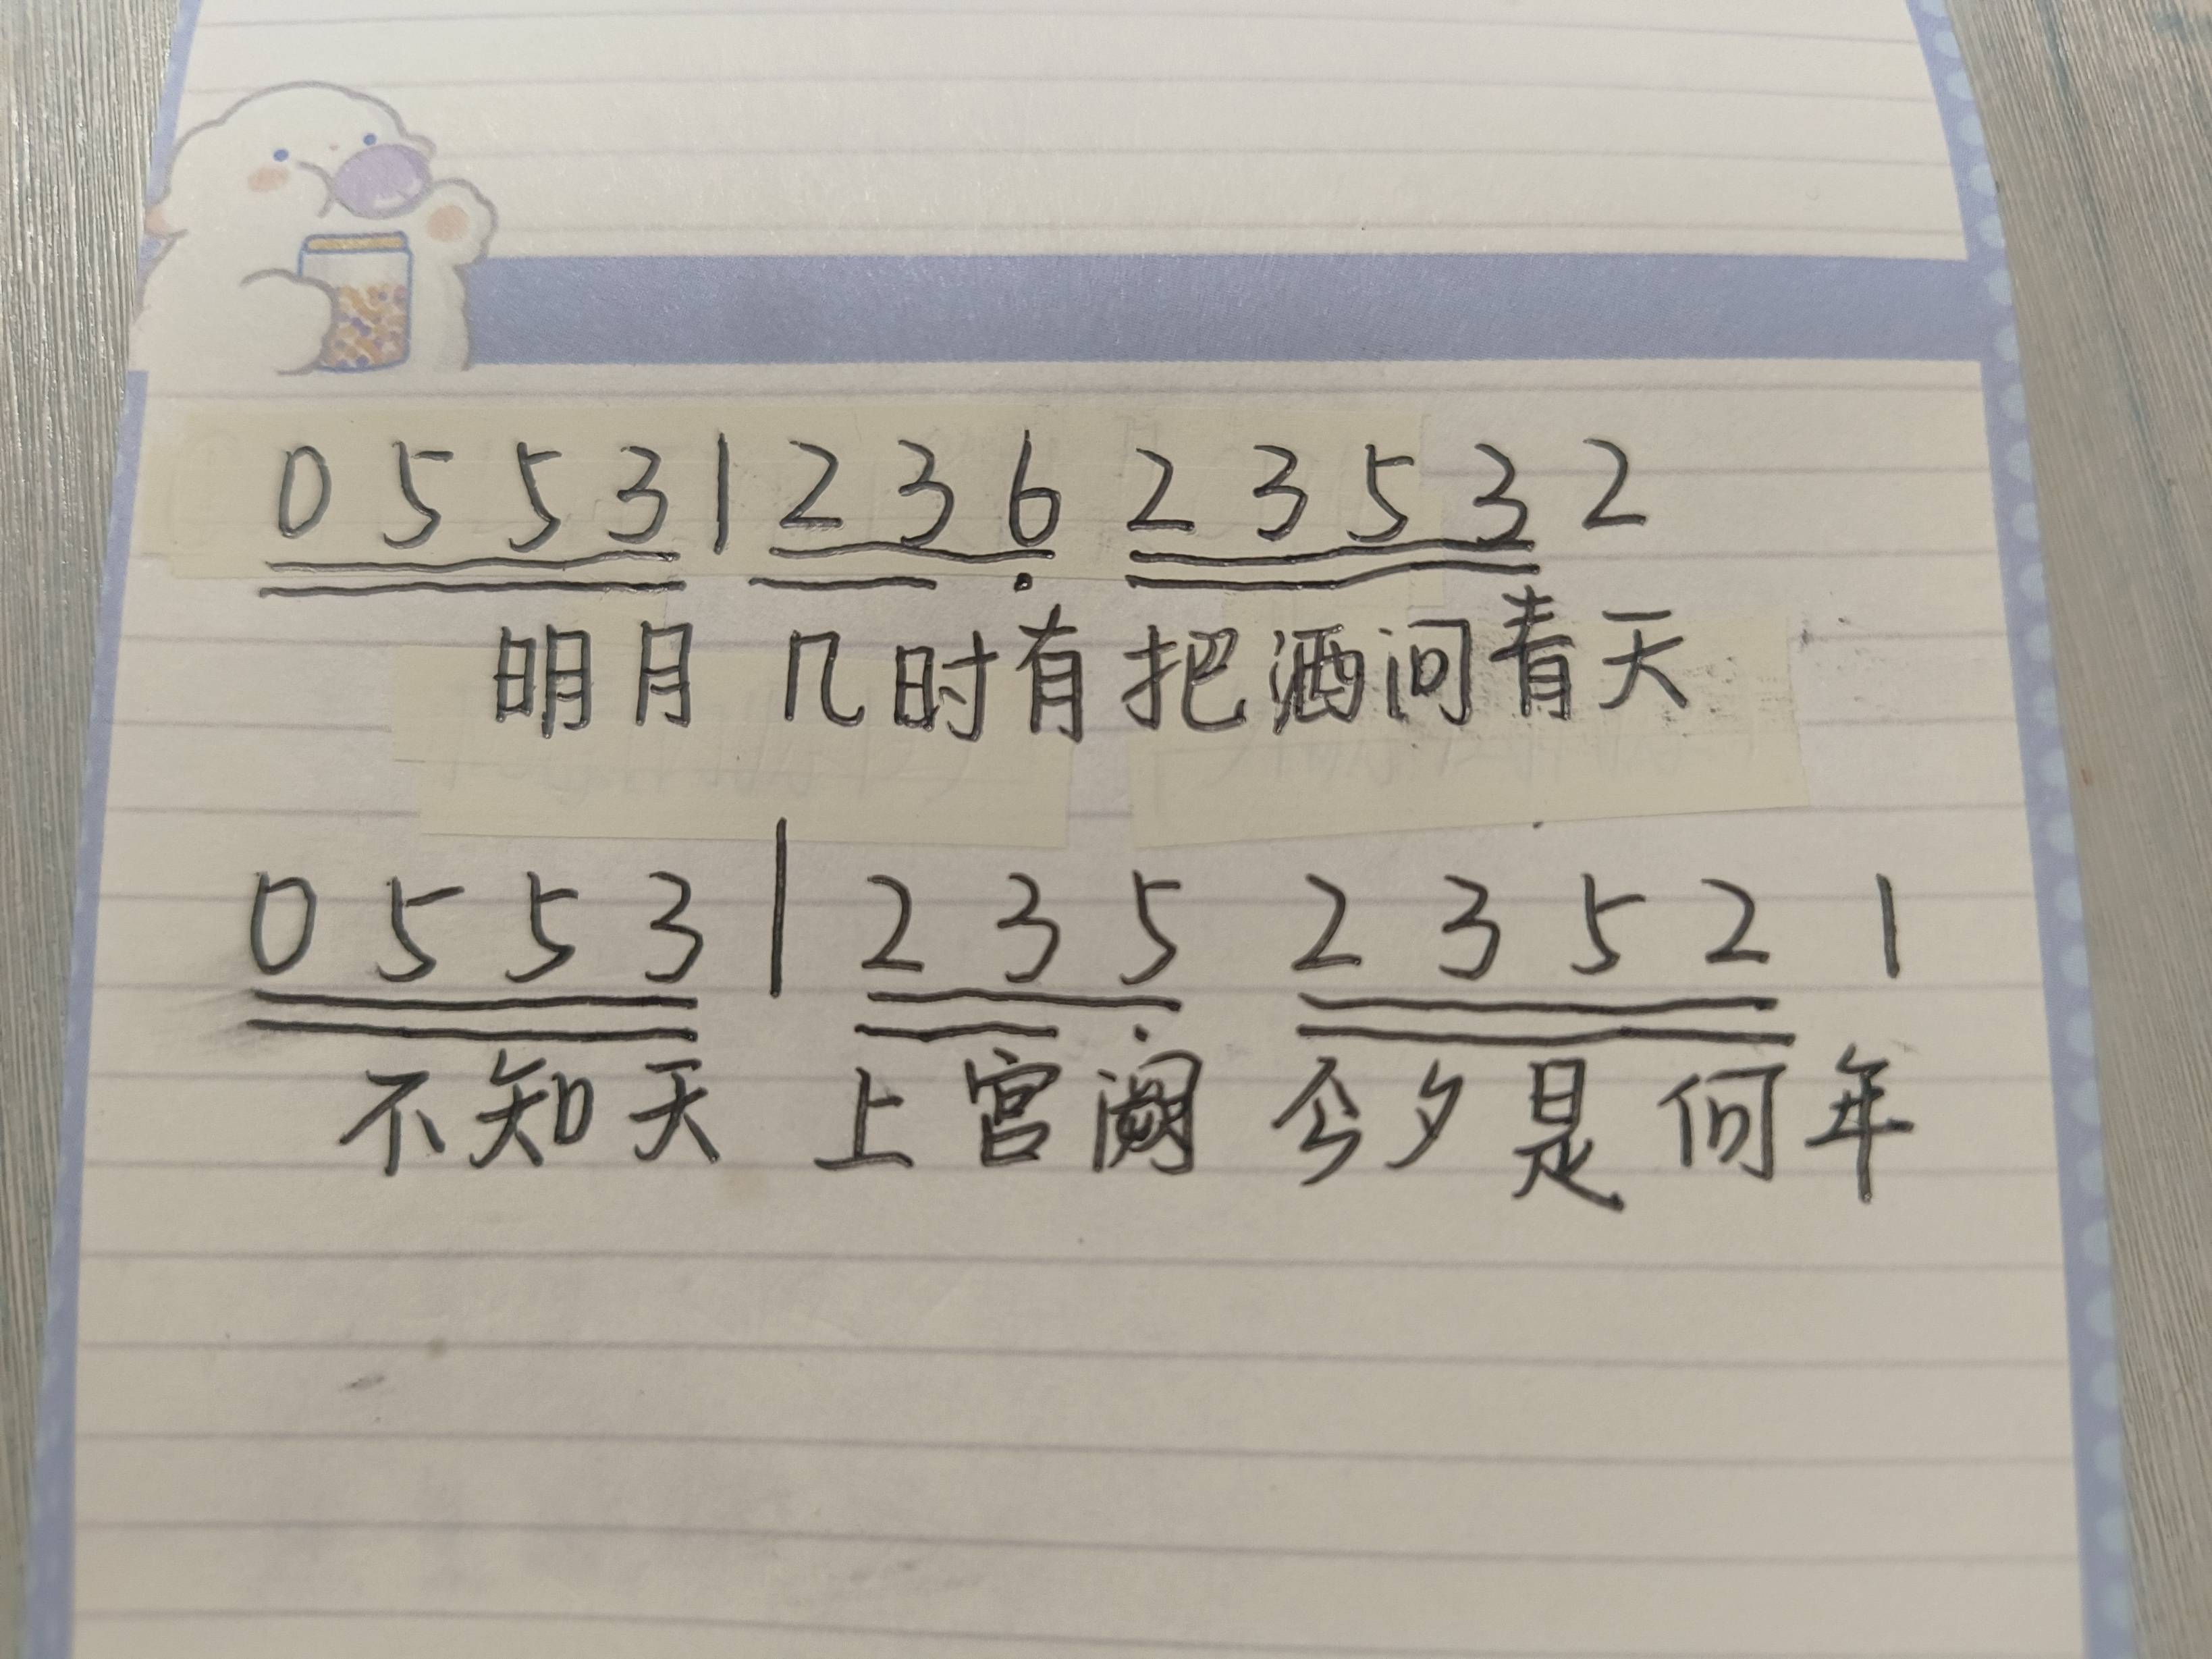 0 5 5 3 | 2 3 6 2 3 5 3 2
明月 几时有 把酒问青天
0 5 5 3 | 2 3 5 2 3 5 2 1
不知天 上宫阙 今夕是何年